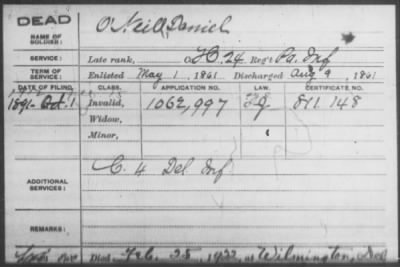 DEAD
NAME OF SOLDIER: O'Neill, Daniel
SERVICE: Late rank, Co. H. 24 Reg't Pa. Inf
TERM OF SERVICE: Enlisted May 1, 1861 Discharged Aug 9, 1861
DATE OF FILING. CLASS. APPLICATION NO. LAW. CERTIFICATE NO.
1891-Oct. 1 Invalid, 1062,997 811 148
Widow,
Minor,
ADDITIONAL SERVICES: C. 4 Del Inf
REMARKS:
Died Feb. 25, 1922, at Wilmington, Del